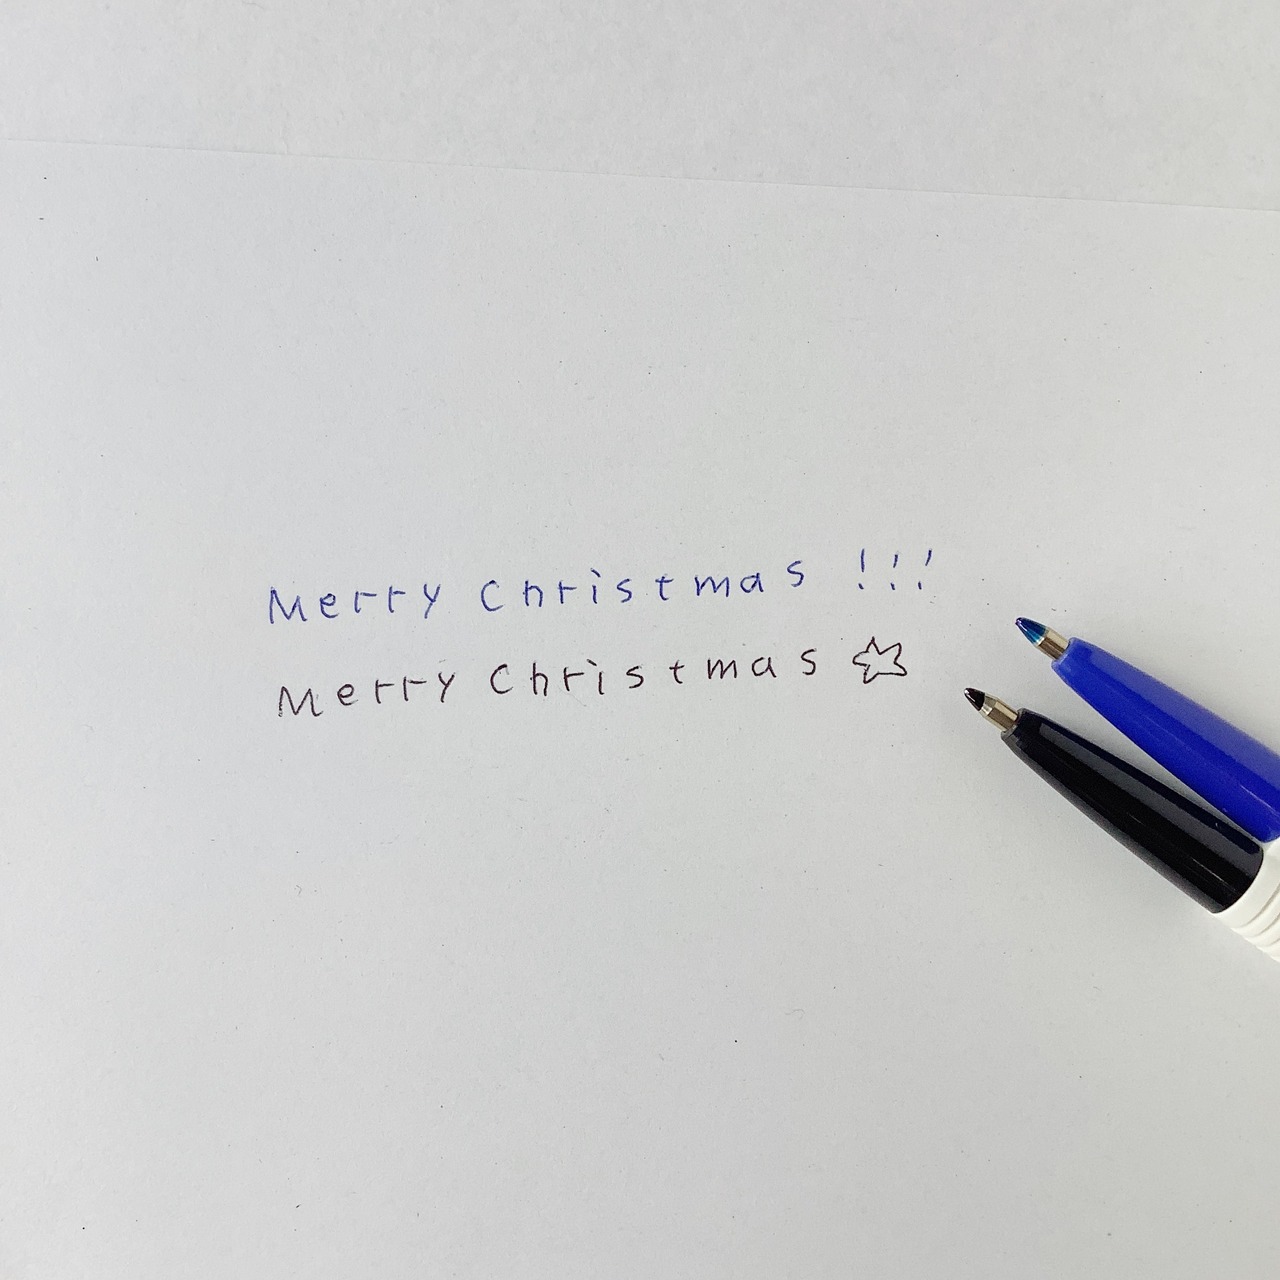 Merry Christmas !!!
Merry Christmas ☆